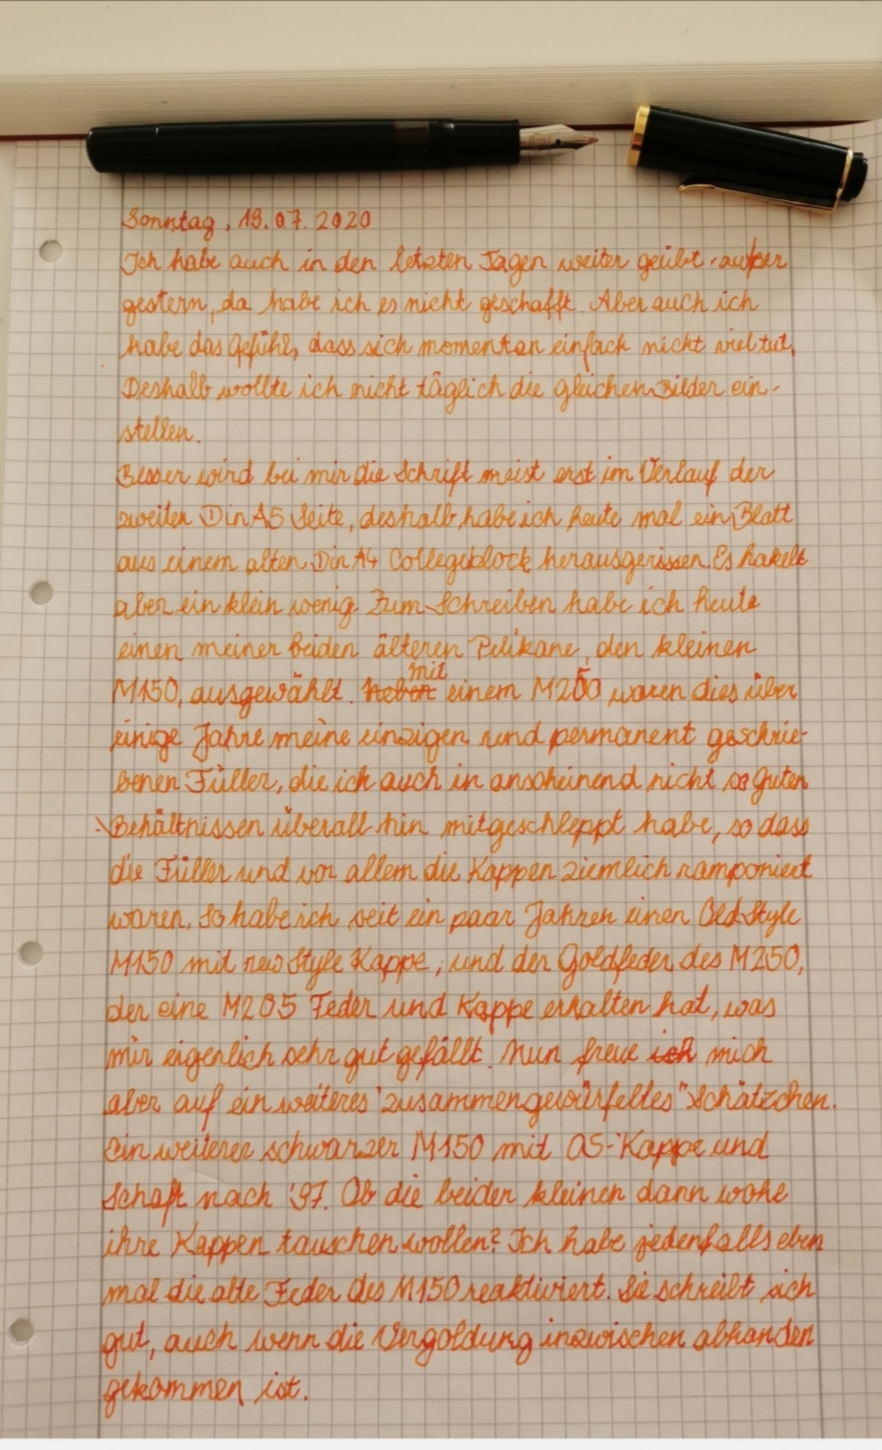 Sonntag, 19.07.2020
Ich habe auch in den letzten Tagen weiter geübt, außer
gestern, da habe ich es nicht geschafft. Aber auch ich
habe das Gefühl, dass sich momentan einfach nicht viel tut.
Deshalb wollte ich nicht täglich die gleichen Bilder ein-
stellen.
Besser wird bei mir die Schrift meist erst im Verlauf der
zweiten Din A5 Seite, deshalb habe ich heute mal ein Blatt
aus einem alten Din A4 Collegeblock herausgerissen. Es hakelt
aber ein klein wenig. Zum Schreiben habe ich heute
einen meiner beiden älteren Pelikane, den kleinen
M150, ausgewählt. mit einem M250 waren dies über
einige Jahre meine einzigen und permanent geschrie-
benen Füller, die ich auch in anscheinend nicht so guten
Behältnissen überall hin mitgeschleppt habe, so dass
die Füller und vor allem die Kappen ziemlich ramponiert
waren. So habe ich seit ein paar Jahren einen Old Style
M150 mit new Style Kappe, und den Goldfeder des M250,
der eine M205 Feder und Kappe erhalten hat, was
mir eigenlich sehr gut gefällt. Nun freue ich mich
aber auf ein weiteres "zusammengewürfeltes" Schätzchen.
Ein weiterer schwarzer M150 mit OS-Kappe und
Schaft nach '97. Ob die beiden kleinen dann wohl
ihre Kappen tauschen wollen? Ich habe jedenfalls eben
mal die alte Feder des M150 reaktiviert. Sie schreibt sich
gut, auch wenn die Vergoldung inzwischen abhanden
gekommen ist.